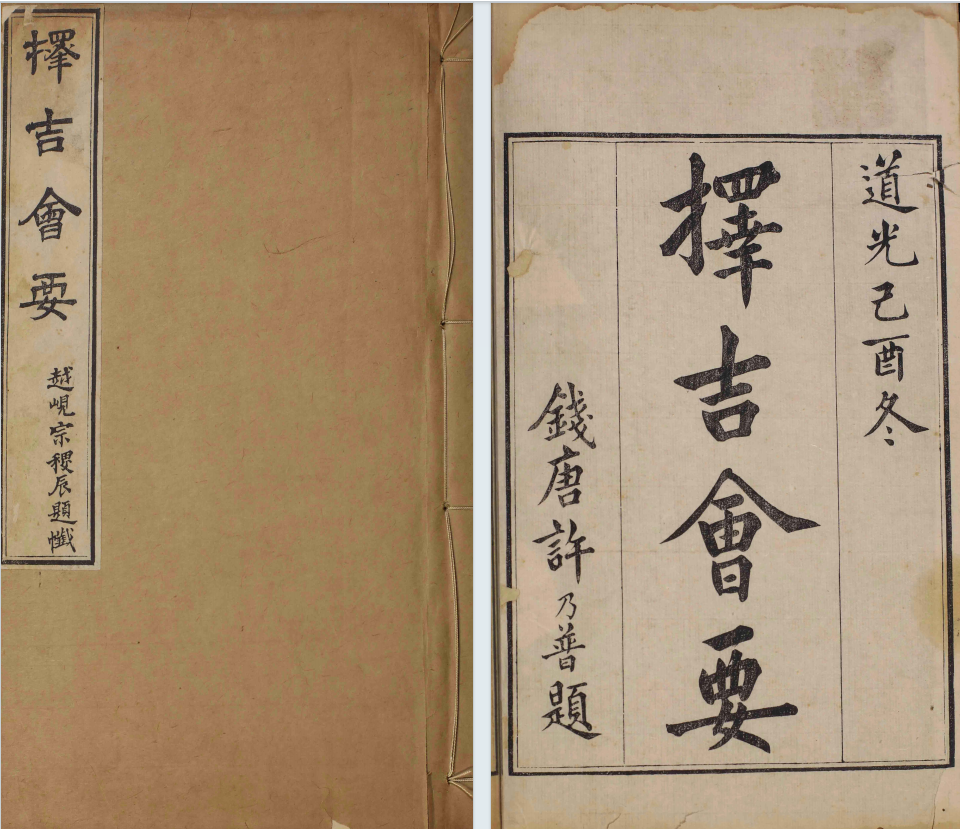 擇吉會要
越峴宗稷辰題籤
道光己酉冬
擇吉會要
錢唐許乃普題